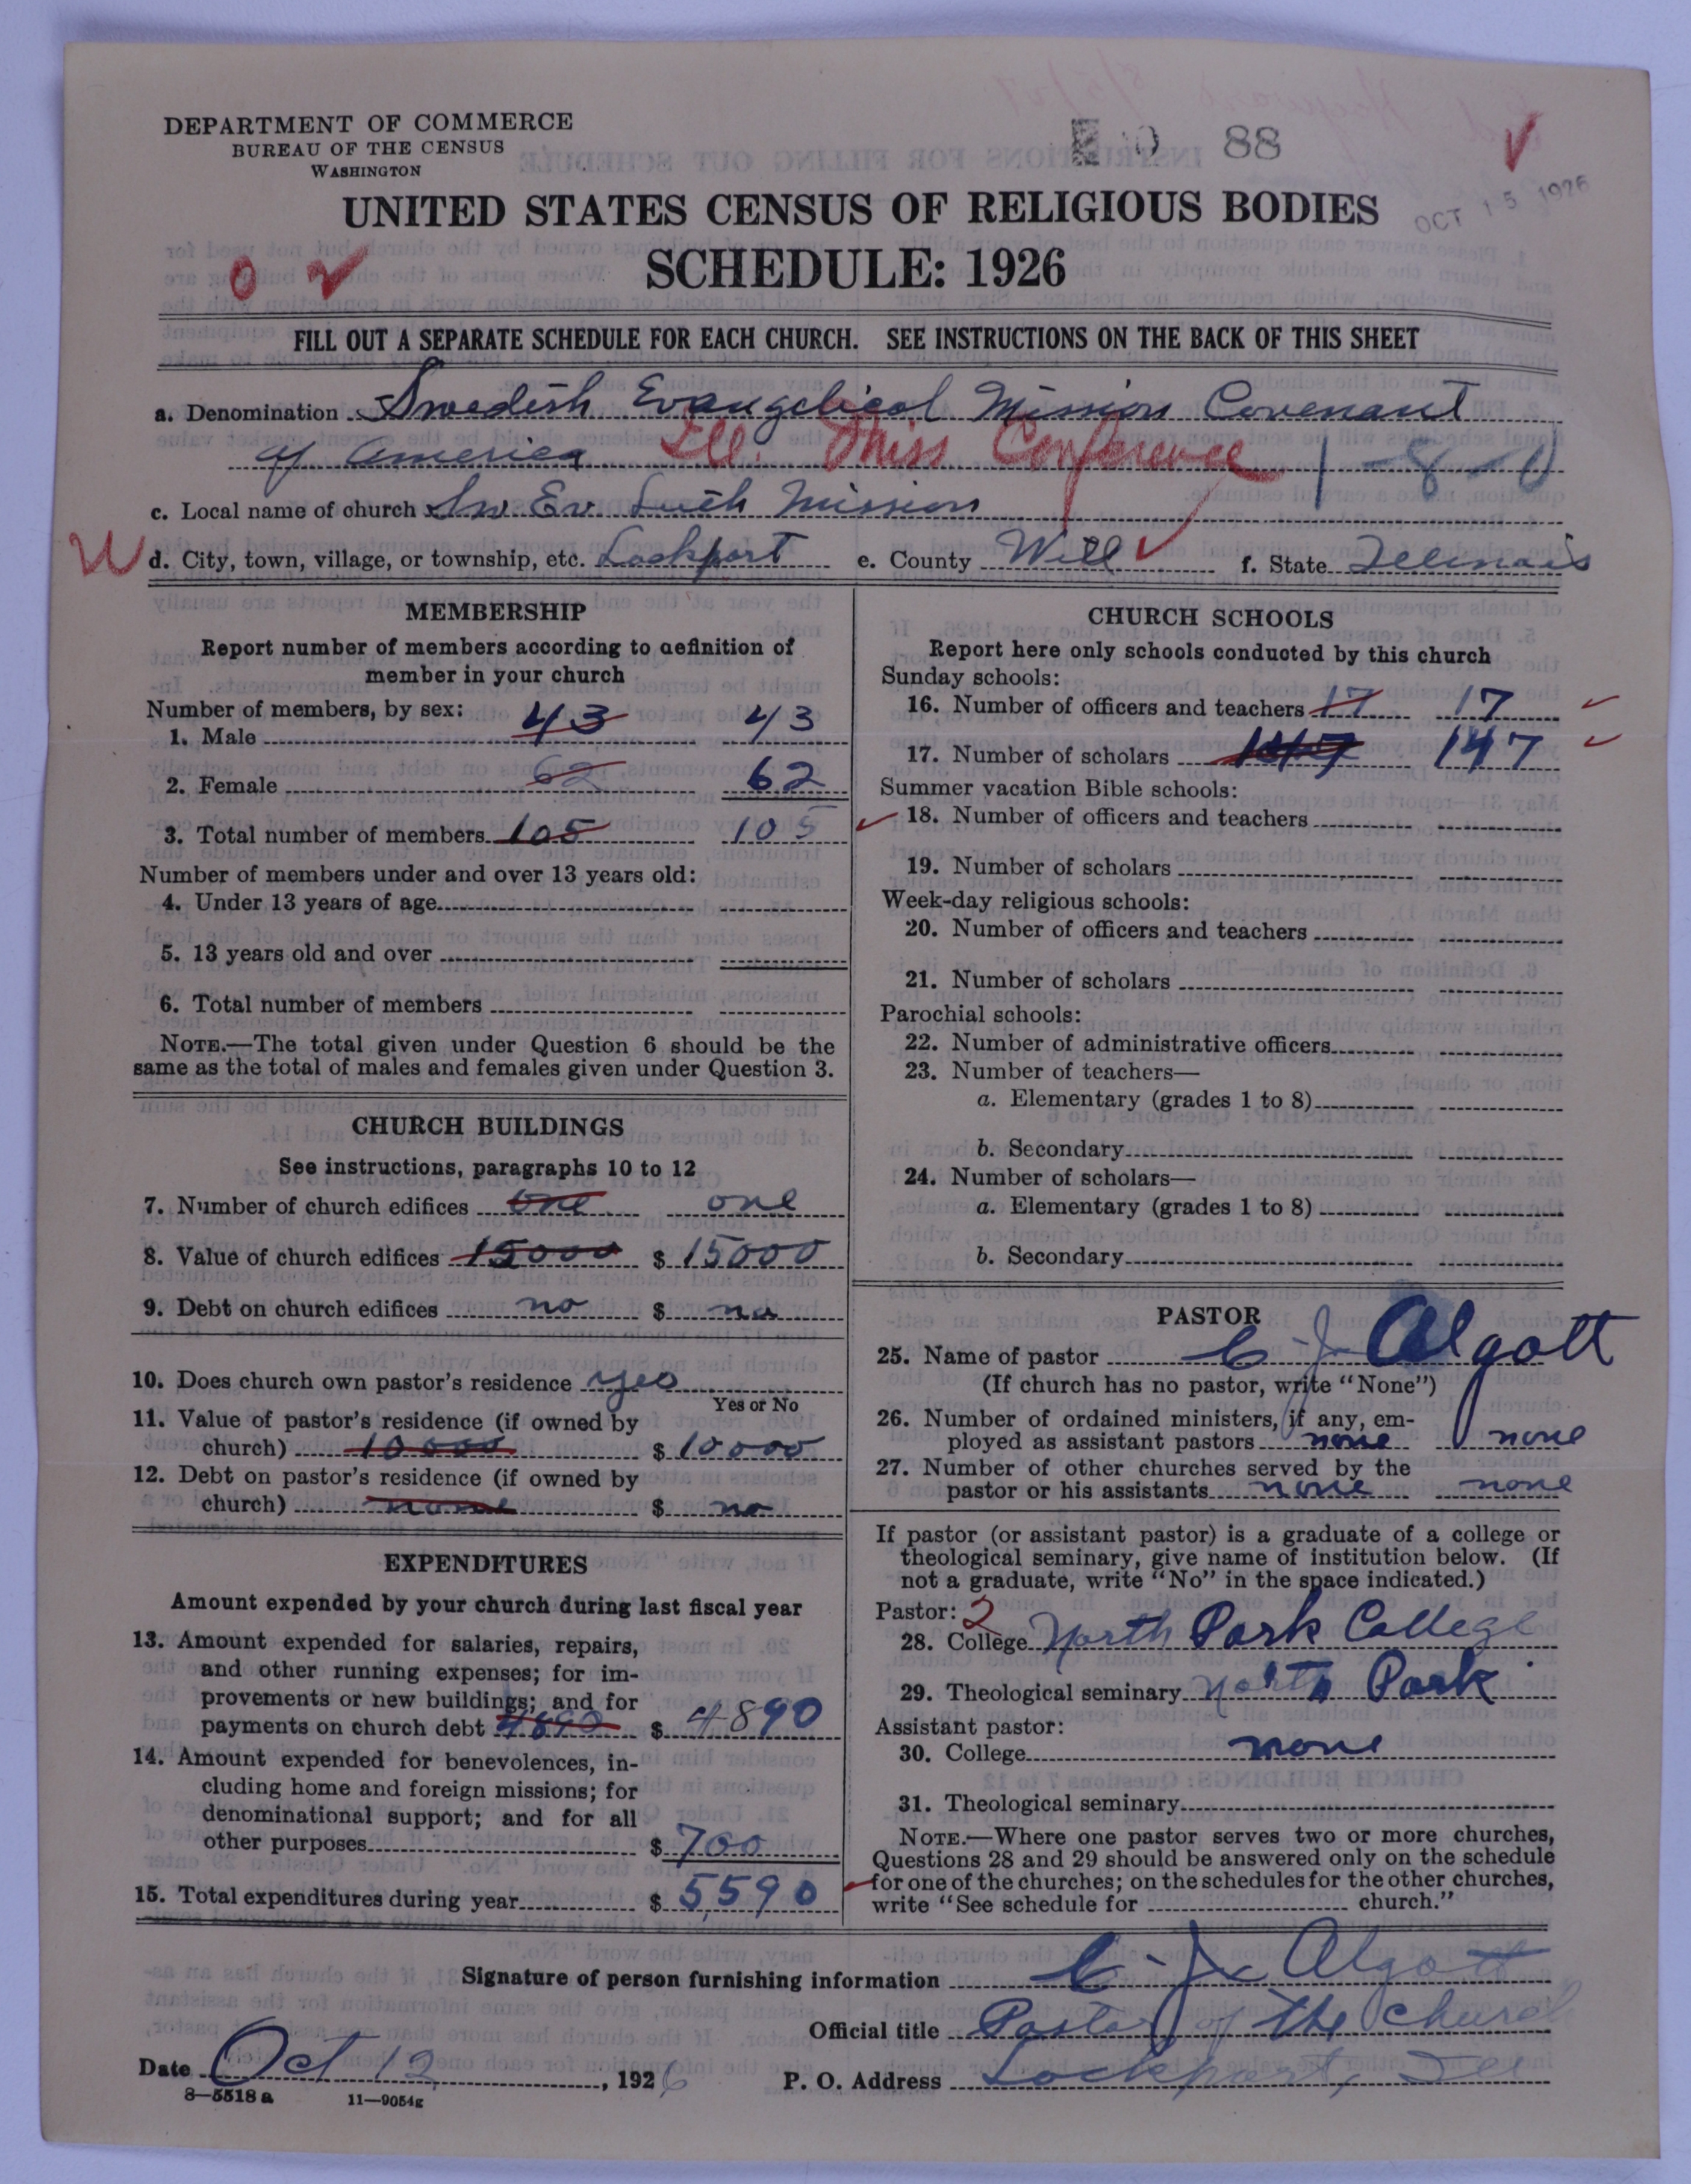 DEPARTMENT OF COMMERCE
BUREAU OF THE CENSUS
WASHINGTON
88
OCT 15 1926
UNITED STATES CENSUS OF RELIGIOUS BODIES
SCHEDULE: 1926
FILL OUT A SEPARATE SCHEDULE FOR EACH CHURCH. SEE INSTRUCTIONS ON THE BACK OF THIS SHEET
a. Denomination Swedish Evangelical Mission Covenant
of America Ill. Miss Conference 1-8-0
c. Local name of church Sw Ev Luth Mission
d. City, town, village, or township, etc. Lockport e. County Will f. State Illinois
MEMBERSHIP
Report number of members according to definition of
member in your church
Number of members, by sex:
1. Male 43 43
2. Female 62 62
3. Total number of members 105 105
Number of members under and over 13 years old:
4. Under 13 years of age
5. 13 years old and over
6. Total number of members
NOTE.—The total given under Question 6 should be the
same as the total of males and females given under Question 3.
CHURCH BUILDINGS
See instructions, paragraphs 10 to 12
7. Number of church edifices one one
8. Value of church edifices 15000 $ 15000
9. Debt on church edifices no $ no
10. Does church own pastor's residence yes
Yes or No
11. Value of pastor's residence (if owned by
church) 10000 $ 10000
12. Debt on pastor's residence (if owned by
church) none $ no
EXPENDITURES
Amount expended by your church during last fiscal year
13. Amount expended for salaries, repairs,
and other running expenses; for im-
provements or new buildings; and for
payments on church debt 4890 $ 4890
14. Amount expended for benevolences, in-
cluding home and foreign missions; for
denominational support; and for all
other purposes $ 700
15. Total expenditures during year $ 5590
CHURCH SCHOOLS
Report here only schools conducted by this church
Sunday schools:
16. Number of officers and teachers 17 17
17. Number of scholars 147 147
Summer vacation Bible schools:
18. Number of officers and teachers
19. Number of scholars
Week-day religious schools:
20. Number of officers and teachers
21. Number of scholars
Parochial schools:
22. Number of administrative officers
23. Number of teachers—
a. Elementary (grades 1 to 8)
b. Secondary
24. Number of scholars—
a. Elementary (grades 1 to 8)
b. Secondary
PASTOR
25. Name of pastor C J Algott
(If church has no pastor, write "None")
26. Number of ordained ministers, if any, em-
ployed as assistant pastors none none
27. Number of other churches served by the
pastor or his assistants none none
If pastor (or assistant pastor) is a graduate of a college or
theological seminary, give name of institution below. (If
not a graduate, write "No" in the space indicated.)
Pastor: 2
28. College North Park College
29. Theological seminary North Park
Assistant pastor:
30. College none
31. Theological seminary
NOTE.—Where one pastor serves two or more churches,
Questions 28 and 29 should be answered only on the schedule
for one of the churches; on the schedules for the other churches,
write "See schedule for church."
Signature of person furnishing information C. J. Algott
Official title Pastor of the church
Date Oct 12, 1926 P. O. Address Lockport, Ill
8—5518 a 11—9054g